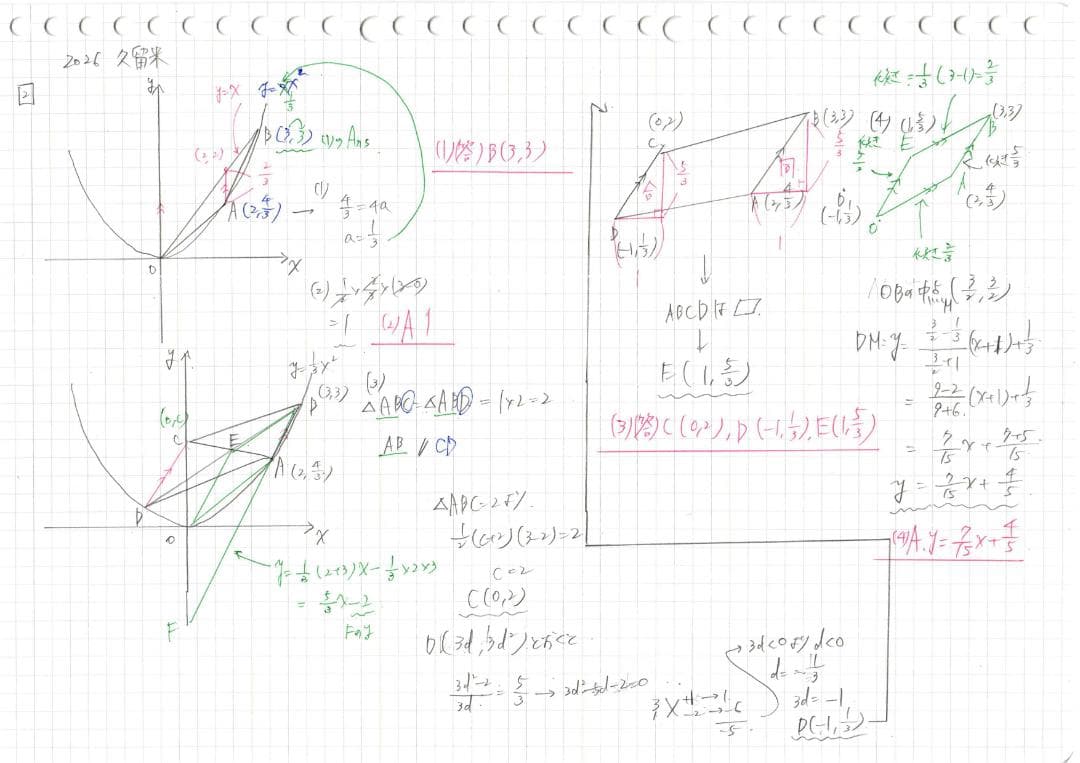 2026 久留米
2
y
y=x
y=x²
1/3
B(3,3) (1)のAns
(2,2)
2/3
A(2,4/3)
O
x
(1)
4/3=4a
a=1/3
(1)(答)B(3,3)
(2) 1/2×2/3×(3-0)
=1
(2)A 1
y
y=1/3x²
B(3,3)
(0,c)
C
E
A(2,4/3)
D
O
x
F
y=1/3(2+3)x-1/3×2×3
=5/3x-2
Fのy
(3)
△ABC=△ABD=1×2=2
AB // CD
△ABC=2より
1/2(c+2)(3-2)=2
c=2
C(0,2)
D(3d,3d²)とおくと
3d²-2/3d=5/3→3d²-5d-2=0
3 +1→1
1 -2→-6
-5
3d<0よりd<0
d=-1/3
3d=-1
D(-1,1/3)
(0,2)
C
B(3,3)
5/3
5/3
A(2,4/3)
D
(-1,1/3)
1
1
ABCDは▱
E(1,5/3)
(3)(答)C(0,2),D(-1,1/3),E(1,5/3)
(4)
傾き:1/3(3-1)=2/3
(1,5/3)
E
(3,3)
B
傾き
5/3
傾き5/3
A
(2,4/3)
D
(-1,1/3)
O
傾き2/3
OBの中点(3/2,3/2)
M
DM=y=(3/2-1/3)/(3/2+1)(x+1)+1/3
=(9-2)/(9+6)(x+1)+1/3
=7/15x+(7+5)/15
y=7/15x+4/5
(4)A.y=7/15x+4/5